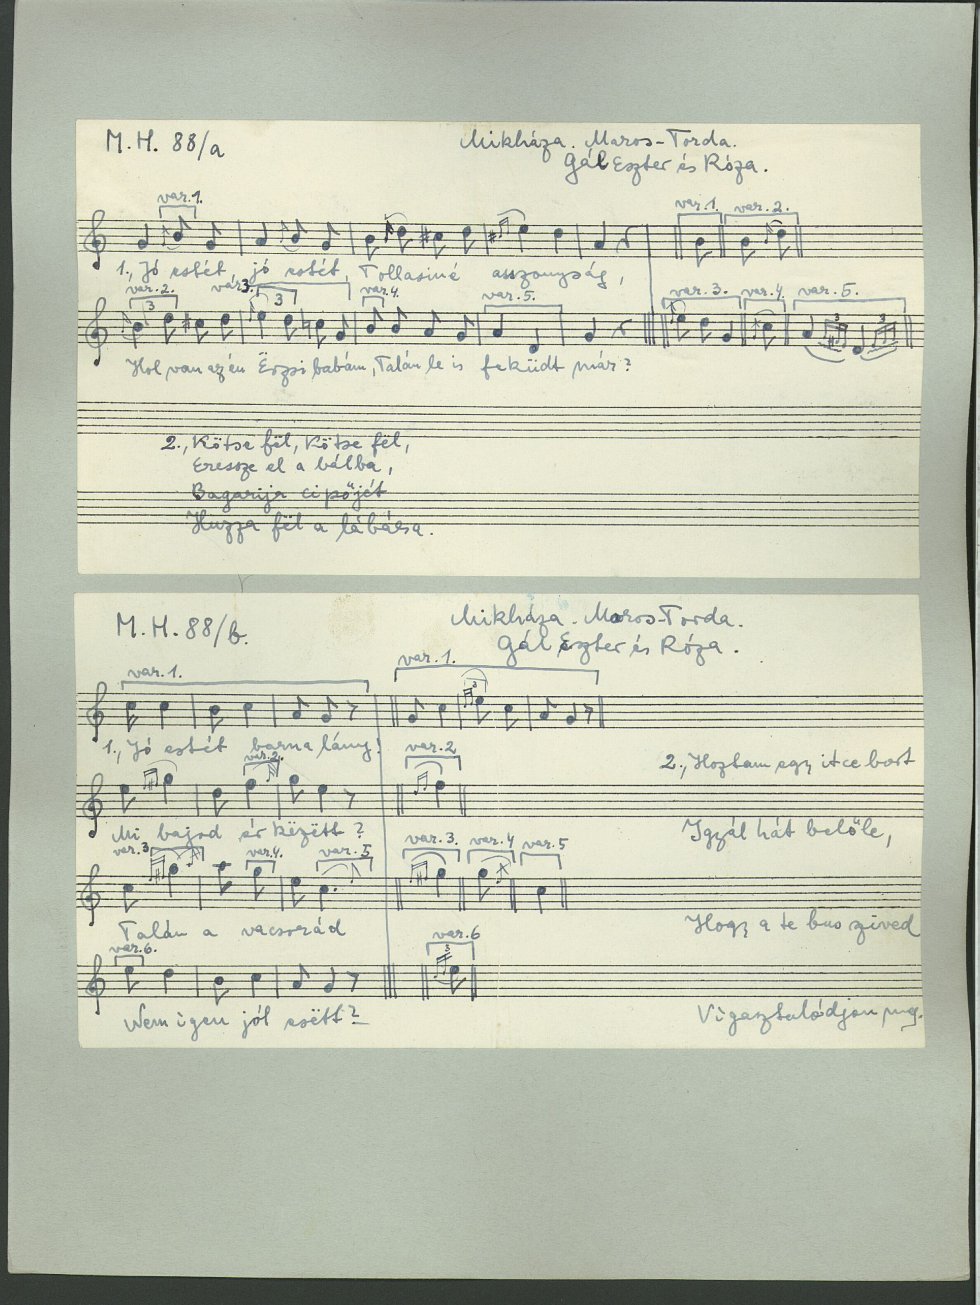 M. H. 88/a
Mikháza. Maros-Torda.
Gál Eszter és Róza.
var. 1.
var. 1. var. 2.
1., Jó estét, jó estét, Tollasiné asszonyság,
var. 2. var. 3. var. 4. var. 5.
var. 3. var. 4. var. 5.
3 3 3 3
Hol van az én Ërzsi babám, Talán le is feküdt már?
2., Kötse fël, Kötse fël,
Eressze el a bálba,
Bagarija cipőjét
Huzza fël a lábára.
M. H. 88/b.
Mikháza. Maros-Torda.
Gál Eszter és Róza.
var. 1.
var. 1.
3
1., Jó estét barna lány!
var. 2. var. 2
2., Hoztam egy itce bort
Mi bajod érkëzëtt?
Igyál hát belőle,
var. 3 var. 4. var. 5
var. 3. var. 4 var. 5
Talán a vacsorád
Hogy a te bus szived
var. 6. var. 6
3
Nem igen jól esëtt?
Vigasztalódjon meg.